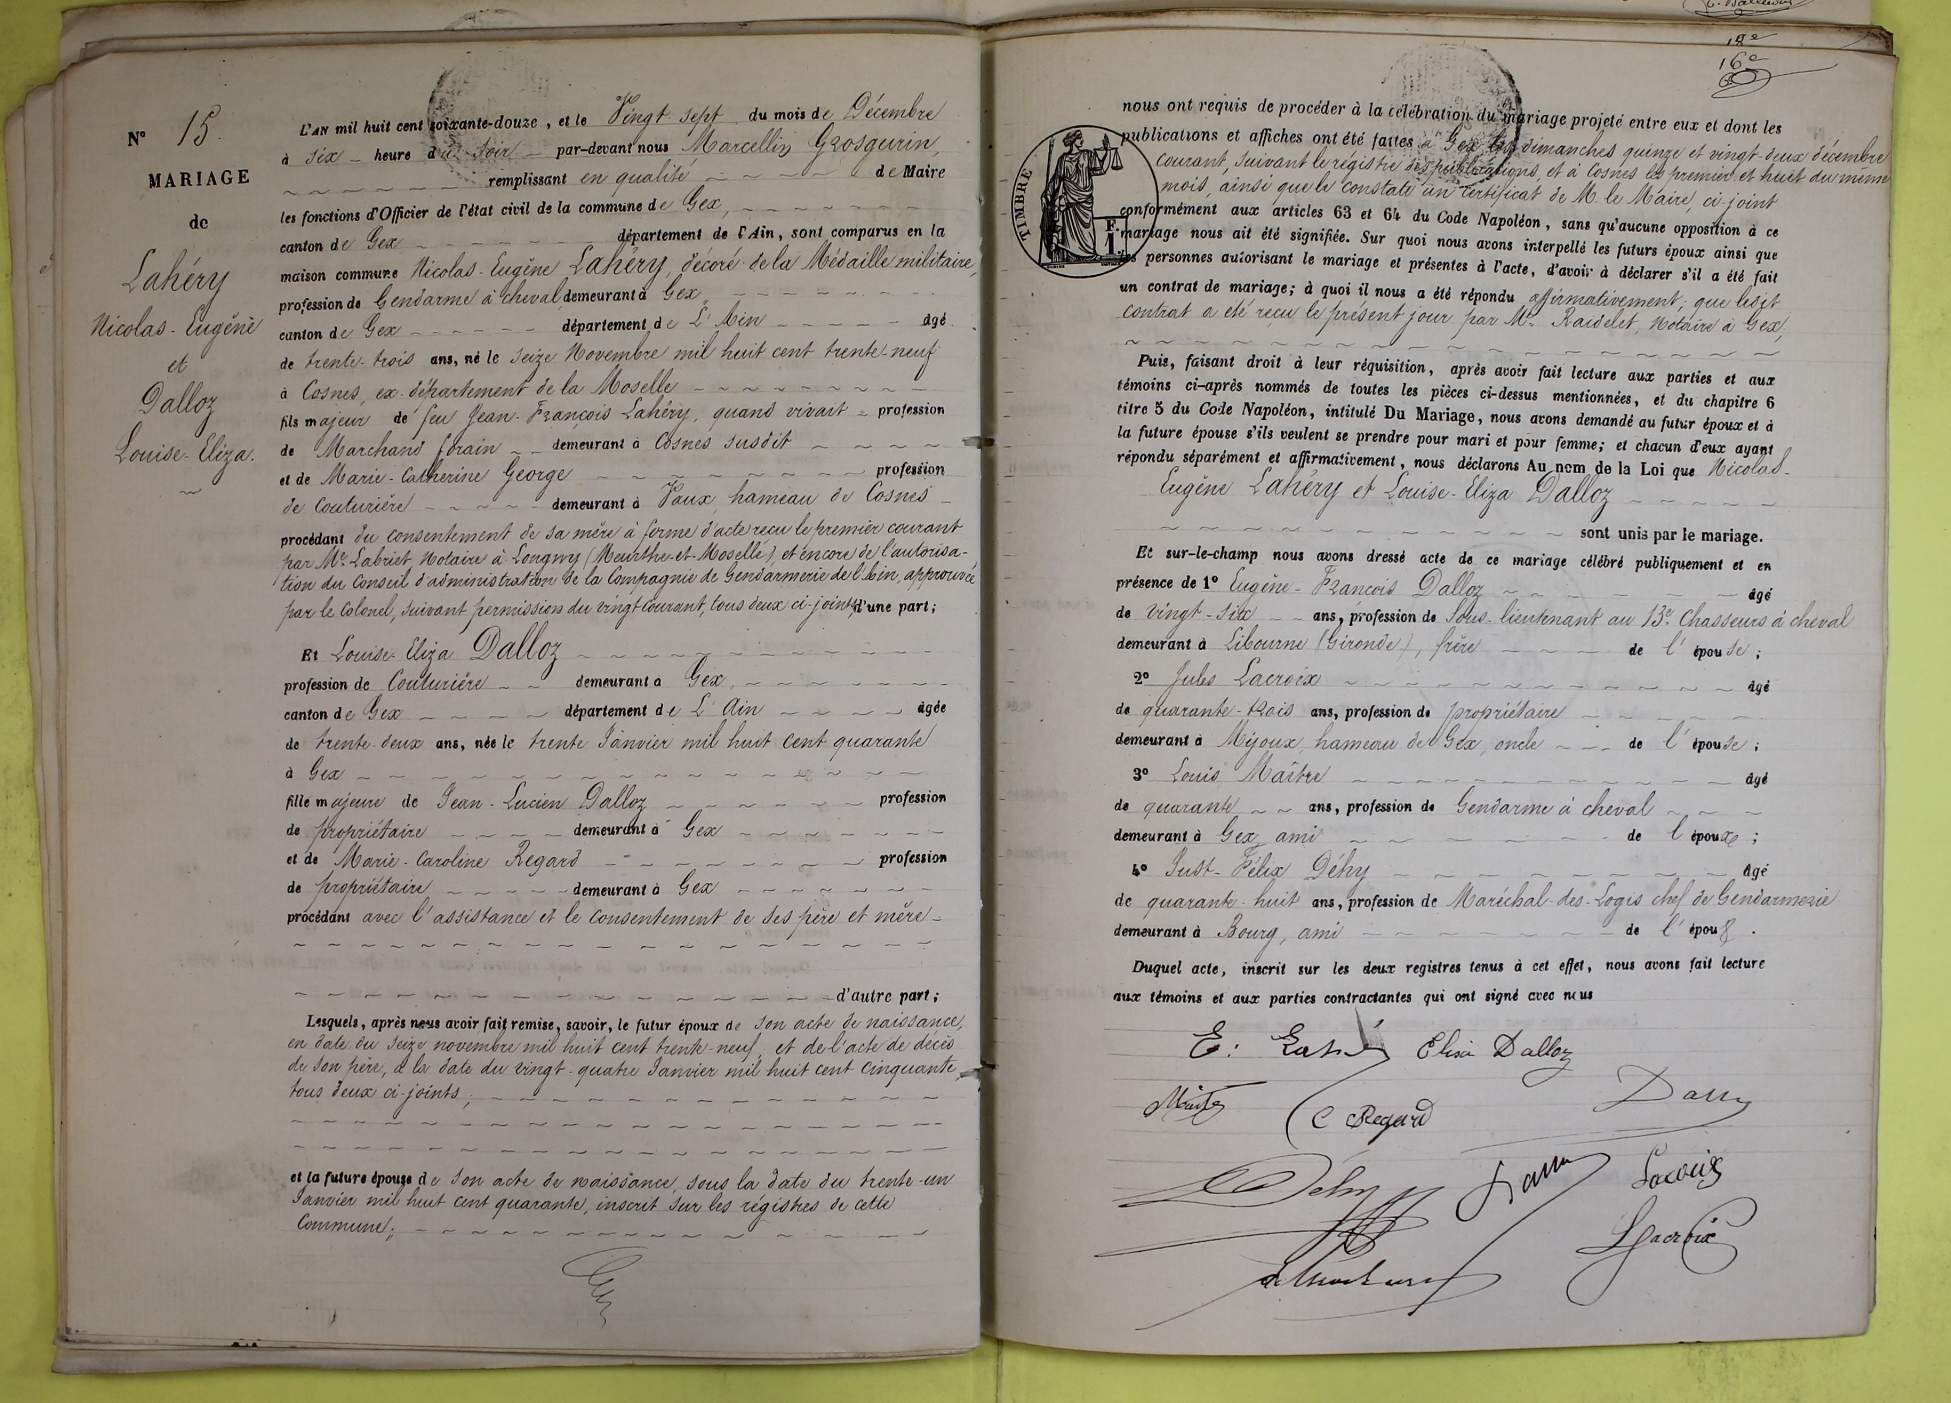 N° 15
MARIAGE
de
Lahéry
Nicolas-Eugène
et
Dalloz
Louise-Eliza.
L'AN mil huit cent soixante-douze, et le Vingt sept du mois de Décembre
à six heure du soir par-devant nous Marcellin Grosgurin,
remplissant en qualité de Maire
les fonctions d'Officier de l'état civil de la commune de Gex,
canton de Gex département de l'Ain, sont comparus en la
maison commune Nicolas-Eugène Lahéry, décoré de la Médaille militaire,
profession de Gendarme à cheval demeurant à Gex,
canton de Gex département de L'Ain âgé
de trente-trois ans, né le seize Novembre mil huit cent trente-neuf
à Cosnes, ex-département de la Moselle
fils majeur de feu Jean-François Lahéry, quand vivait profession
de Marchand forain demeurant à Cosnes susdit
et de Marie-Catherine George profession
de Couturière demeurant à Vaux, hameau de Cosnes
procédant du consentement de sa mère à forme d'acte reçu le premier courant
par Me Labriet, Notaire à Longwy (Meurthe-et-Moselle) et encore de l'autorisa-
tion du Conseil d'administration de la Compagnie de Gendarmerie de l'Ain, approuvée
par le Colonel, suivant permission du vingt courant, tous deux ci-joints, d'une part;
Et Louise-Eliza Dalloz
profession de Couturière demeurant à Gex
canton de Gex département de L'Ain âgée
de trente-deux ans, née le trente Janvier mil huit cent quarante
à Gex
fille majeure de Jean-Lucien Dalloz profession
de propriétaire demeurant à Gex
et de Marie-Caroline Regard profession
de propriétaire demeurant à Gex
procédant avec l'assistance et le consentement de ses père et mère
d'autre part;
Lesquels, après nous avoir fait remise, savoir, le futur époux de son acte de naissance,
en date du seize novembre mil huit cent trente-neuf, et de l'acte de décès
de son père, à la date du vingt-quatre Janvier mil huit cent cinquante,
tous deux ci-joints;
et la future épouse de son acte de naissance, sous la date du trente-un
Janvier mil huit cent quarante, inscrit sur les régistres de cette
Commune;
16e
nous ont requis de procéder à la célébration du mariage projeté entre eux et dont les
publications et affiches ont été faites à Gex les dimanches quinze et vingt-deux décembre
courant, suivant le régistre des publications, et à Cosnes les premier et huit du même
mois, ainsi que le constate un certificat de M. le Maire, ci-joint
conformément aux articles 63 et 64 du Code Napoléon, sans qu'aucune opposition à ce
mariage nous ait été signifiée. Sur quoi nous avons interpellé les futurs époux ainsi que
les personnes autorisant le mariage et présentes à l'acte, d'avoir à déclarer s'il a été fait
un contrat de mariage; à quoi il nous a été répondu affirmativement; que ledit
contrat a été reçu le présent jour par Me Raidelet, Notaire à Gex,
TIMBRE
F.
1.
Puis, faisant droit à leur réquisition, après avoir fait lecture aux parties et aux
témoins ci-après nommés de toutes les pièces ci-dessus mentionnées, et du chapitre 6
titre 5 du Code Napoléon, intitulé Du Mariage, nous avons demandé au futur époux et à
la future épouse s'ils veulent se prendre pour mari et pour femme; et chacun d'eux ayant
répondu séparément et affirmativement, nous déclarons Au nom de la Loi que Nicolas-
Eugène Lahéry et Louise-Eliza Dalloz
sont unis par le mariage.
Et sur-le-champ nous avons dressé acte de ce mariage célébré publiquement et en
présence de 1° Eugène-François Dalloz âgé
de vingt-six ans, profession de Sous-lieutenant au 13e Chasseurs à cheval
demeurant à Libourne (Gironde), frère de l'épouse;
2° Jules Lacroix âgé
de quarante-trois ans, profession de propriétaire
demeurant à Mijoux, hameau de Gex, oncle de l'épouse;
3° Louis Maître âgé
de quarante ans, profession de Gendarme à cheval
demeurant à Gex, ami de l'époux;
4° Just-Félix Déhy âgé
de quarante-huit ans, profession de Maréchal-des-Logis chef de Gendarmerie
demeurant à Bourg, ami de l'époux.
Duquel acte, inscrit sur les deux registres tenus à cet effet, nous avons fait lecture
aux témoins et aux parties contractantes qui ont signé avec nous
E. Lahéry Elisa Dalloz
Maître C Regard
Déhy Lacroix
Lacroix